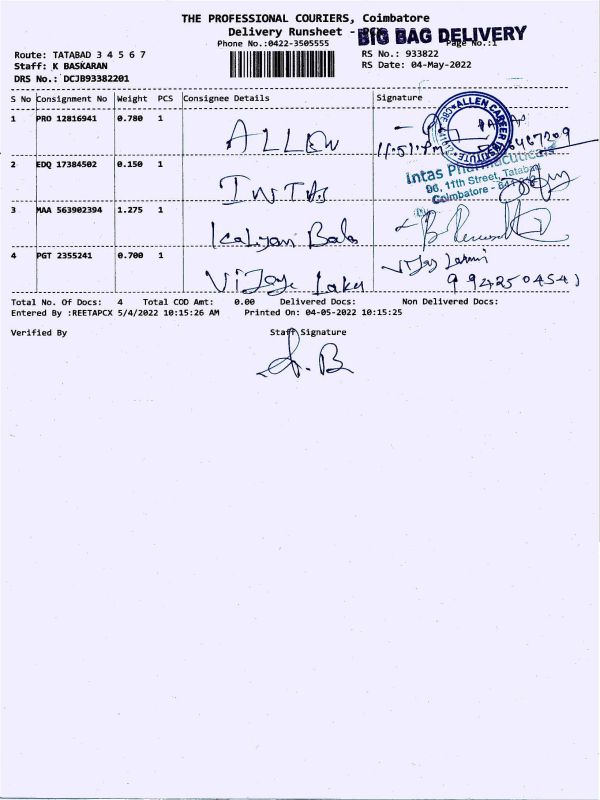 THE PROFESSIONAL COURIERS, Coimbatore
Delivery Runsheet -
BIG BAG DELIVERY
Phone No.:0422-3505555
Page No.:1
Route: TATABAD 3 4 5 6 7
RS No.: 933822
Staff: K BASKARAN
RS Date: 04-May-2022
DRS No.: DCJB93382201
S No Consignment No Weight PCS Consignee Details Signature
1 PRO 12816941 0.780 1
ALLEN
11:51 PM
ALLEN CAREER INSTITUTE
2 EDQ 17384502 0.150 1
INTAS
Intas Pharmaceuticals
96, 11th Street, Tatabad
Coimbatore - 641
3 MAA 563902394 1.275 1
Kalyani Bala
4 PGT 2355241 0.700 1
Vijaye Lakes
Vijay Laxmi
9942504541
Total No. Of Docs: 4 Total COD Amt: 0.00 Delivered Docs: Non Delivered Docs:
Entered By :REETAPCX 5/4/2022 10:15:26 AM Printed On: 04-05-2022 10:15:25
Verified By Staff Signature